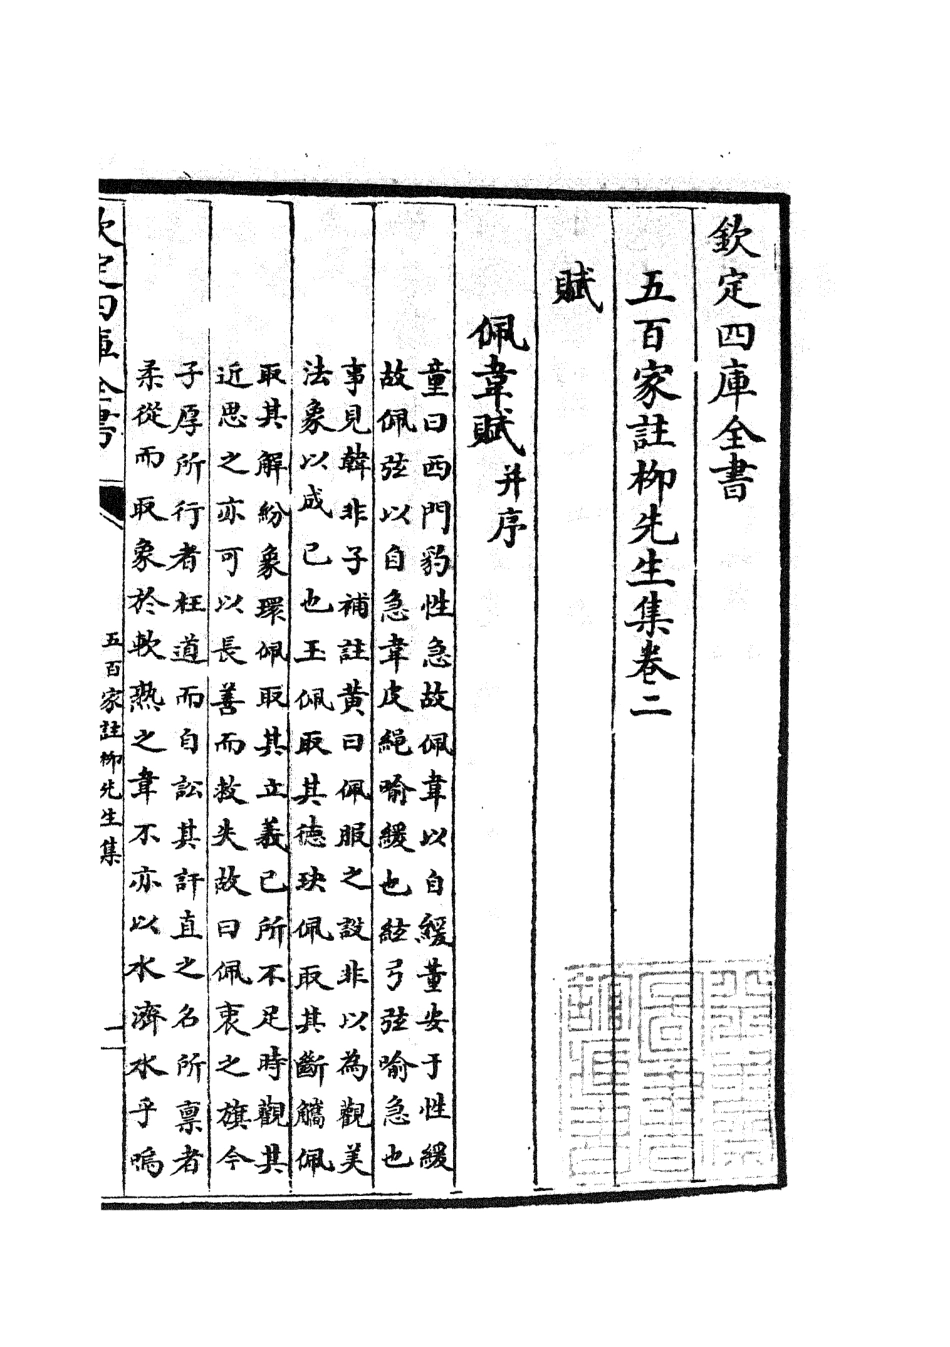 欽定四庫全書
五百家註柳先生集卷二
賦
佩韋賦并序
童曰西門豹性急故佩韋以自緩董安于性緩
故佩弦以自急韋皮繩喻緩也絃弓弦喻急也
事見韓非子補註黃曰佩服之設非以為觀美
法象以成已也玉佩取其德玦佩取其斷觿佩
取其解紛象環佩取其立義已所不足時觀其
近思之亦可以長善而救失故曰佩衷之旗今
子厚所行者枉道而自訟其訐直之名所禀者
柔從而取象於軟熟之韋不亦以水濟水乎嗚
欽定四庫全書
五百家註柳先生集
一